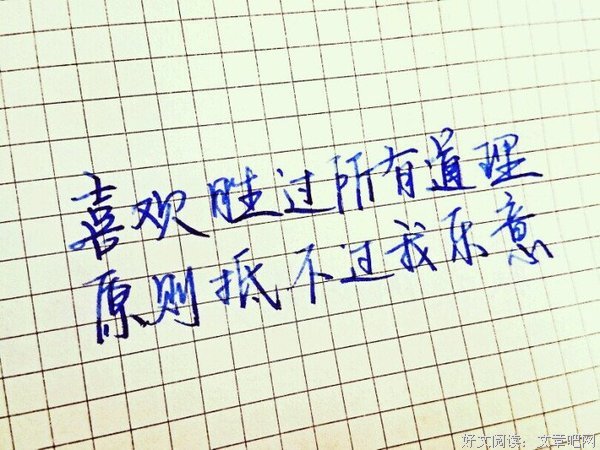 喜欢胜过所有道理
原则抵不过我乐意
好文阅读：文章吧网